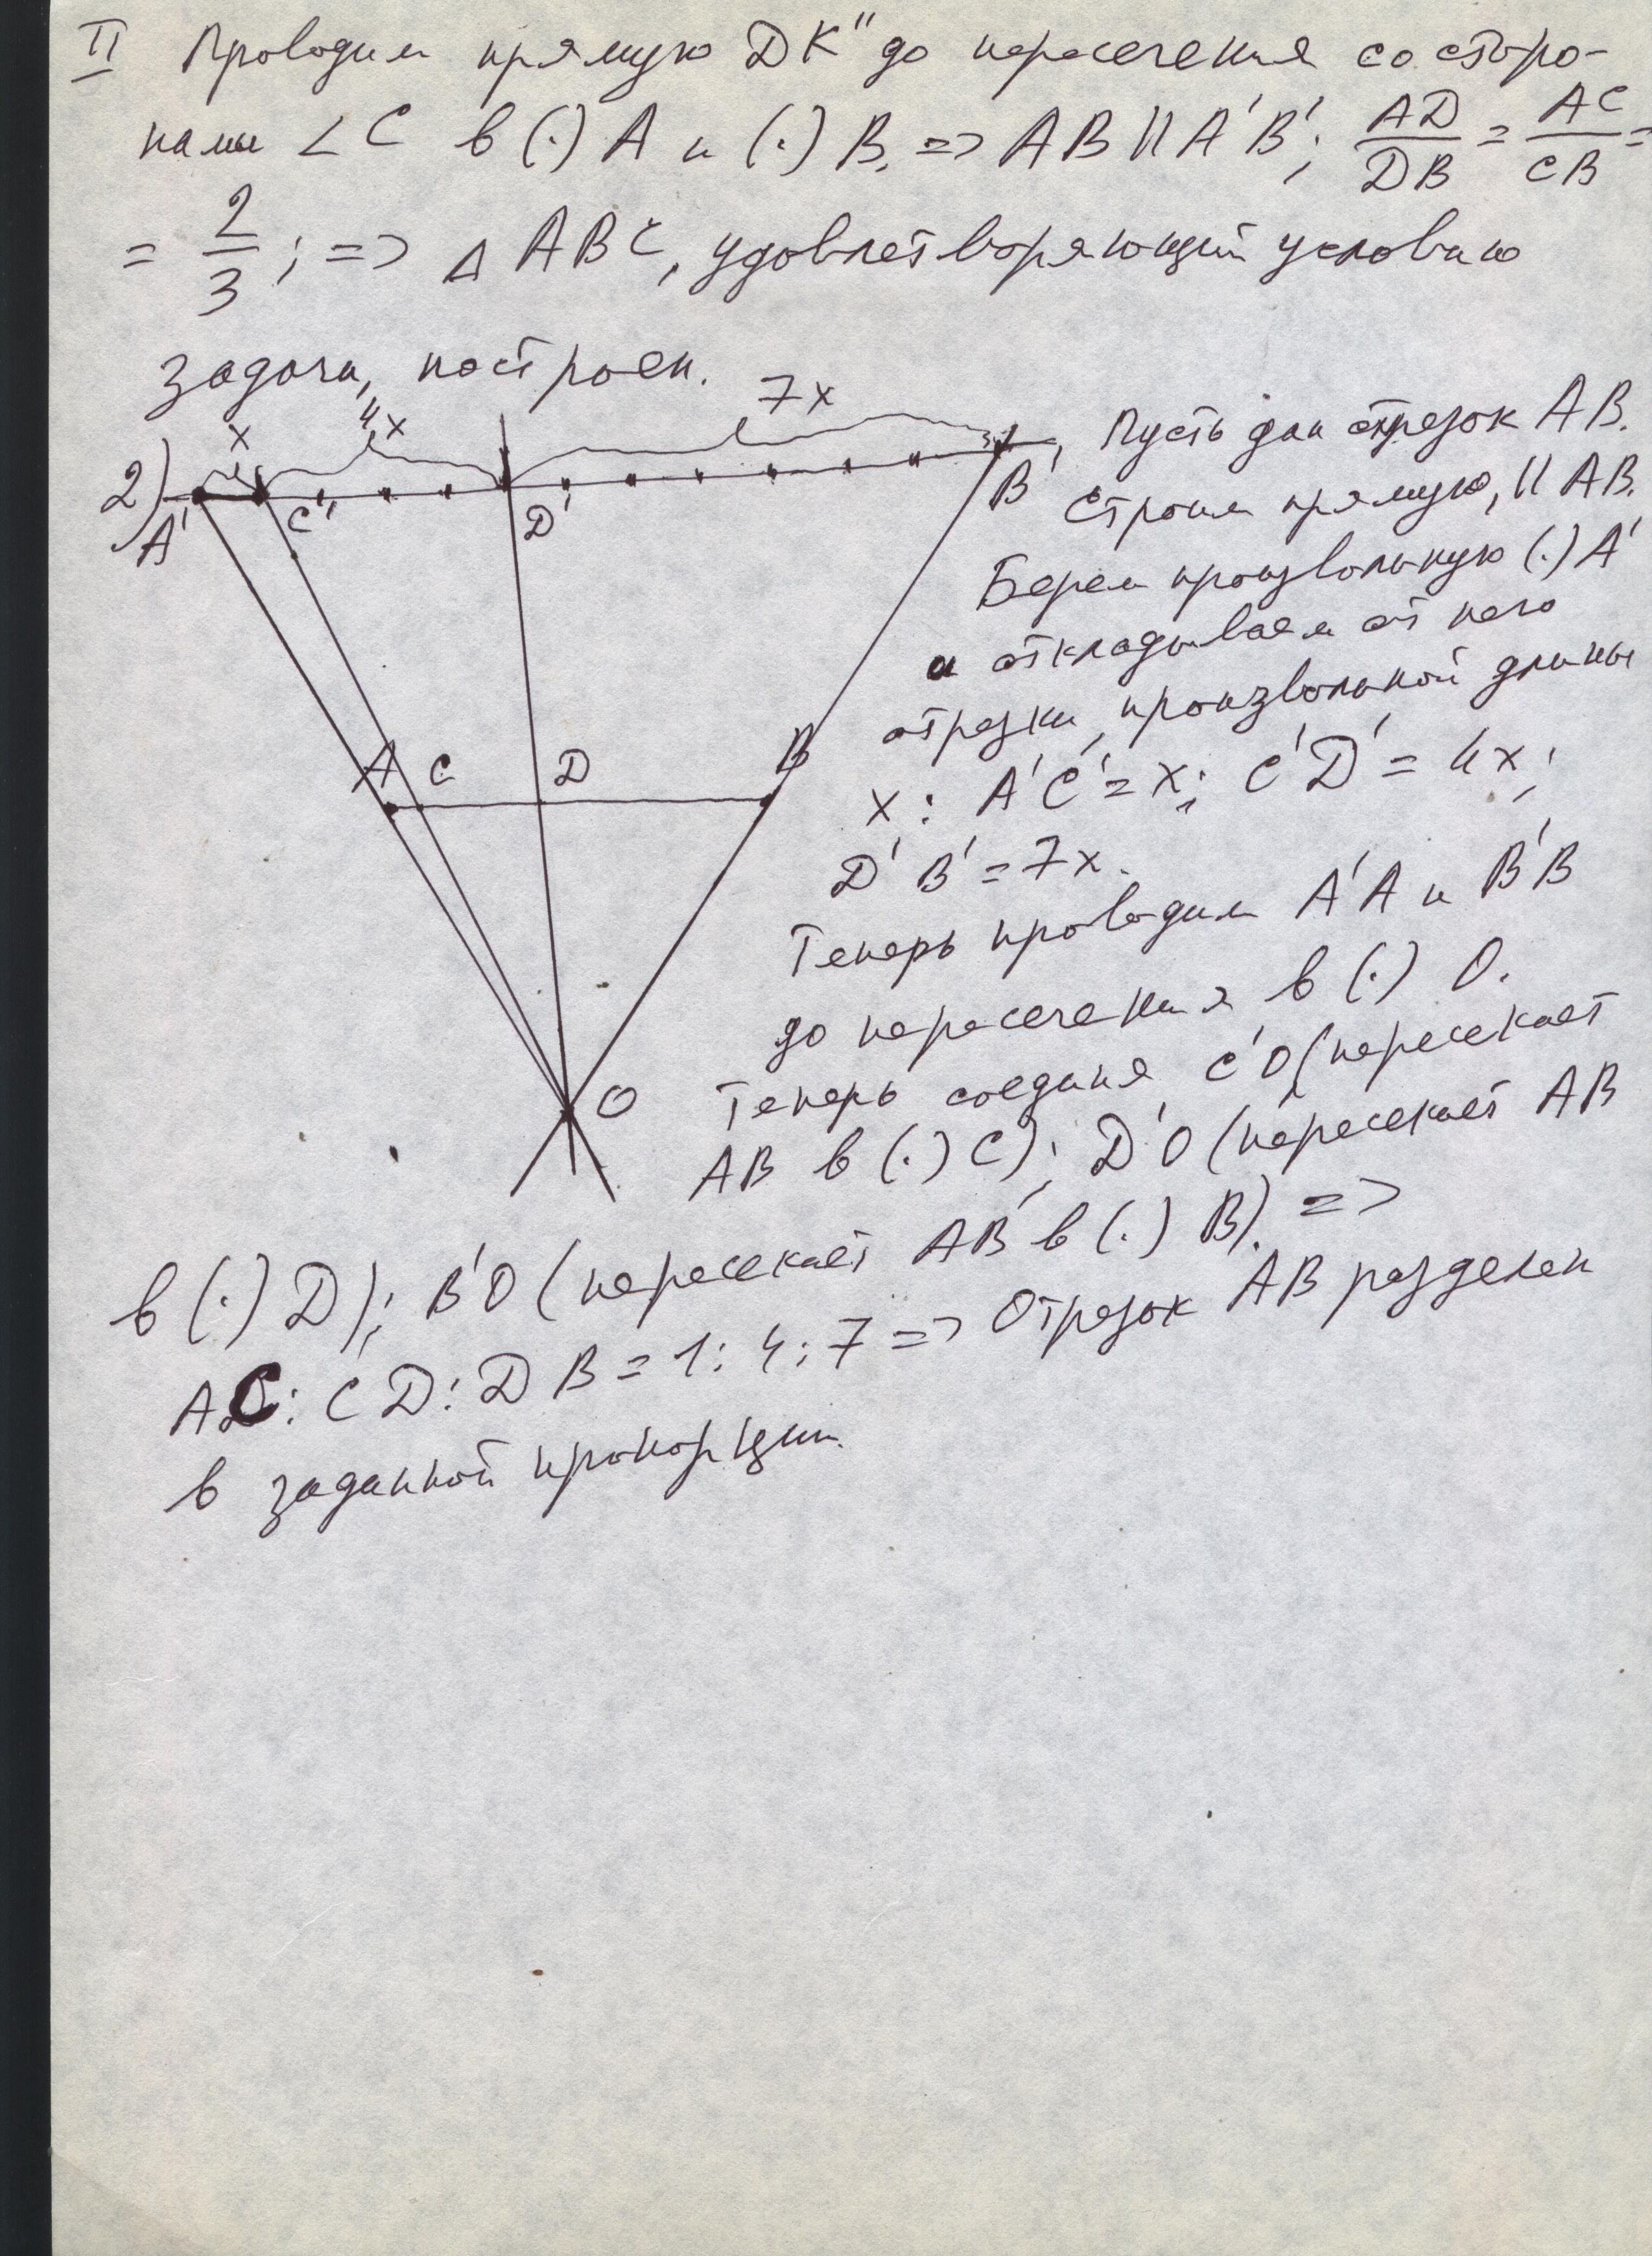 II Проводим прямую DK" до пересечения со сторо-
нами ∠C в (·) A и (·) B. => AB || A'B'; AD/DB = AC/CB =
= 2/3; => △ ABC, удовлетворяющий условию
задачи, построен.
x 4x 7x
2) A' C' D' B'
Пусть дан отрезок AB.
Строим прямую, || AB.
Берем произвольную (·) A'
и откладываем от него
отрезки, произвольной длины
A C D B
x: A'C' = x; C'D' = 4x;
D'B' = 7x.
Теперь проводим A'A и B'B
до пересечения в (·) O.
O
Теперь соединя C'O (пересекает
AB в (·) C); D'O (пересекает AB
в (·) D); B'O (пересекает AB в (·) B). =>
AC : CD : DB = 1 : 4 : 7 => Отрезок AB разделен
в заданной пропорции.